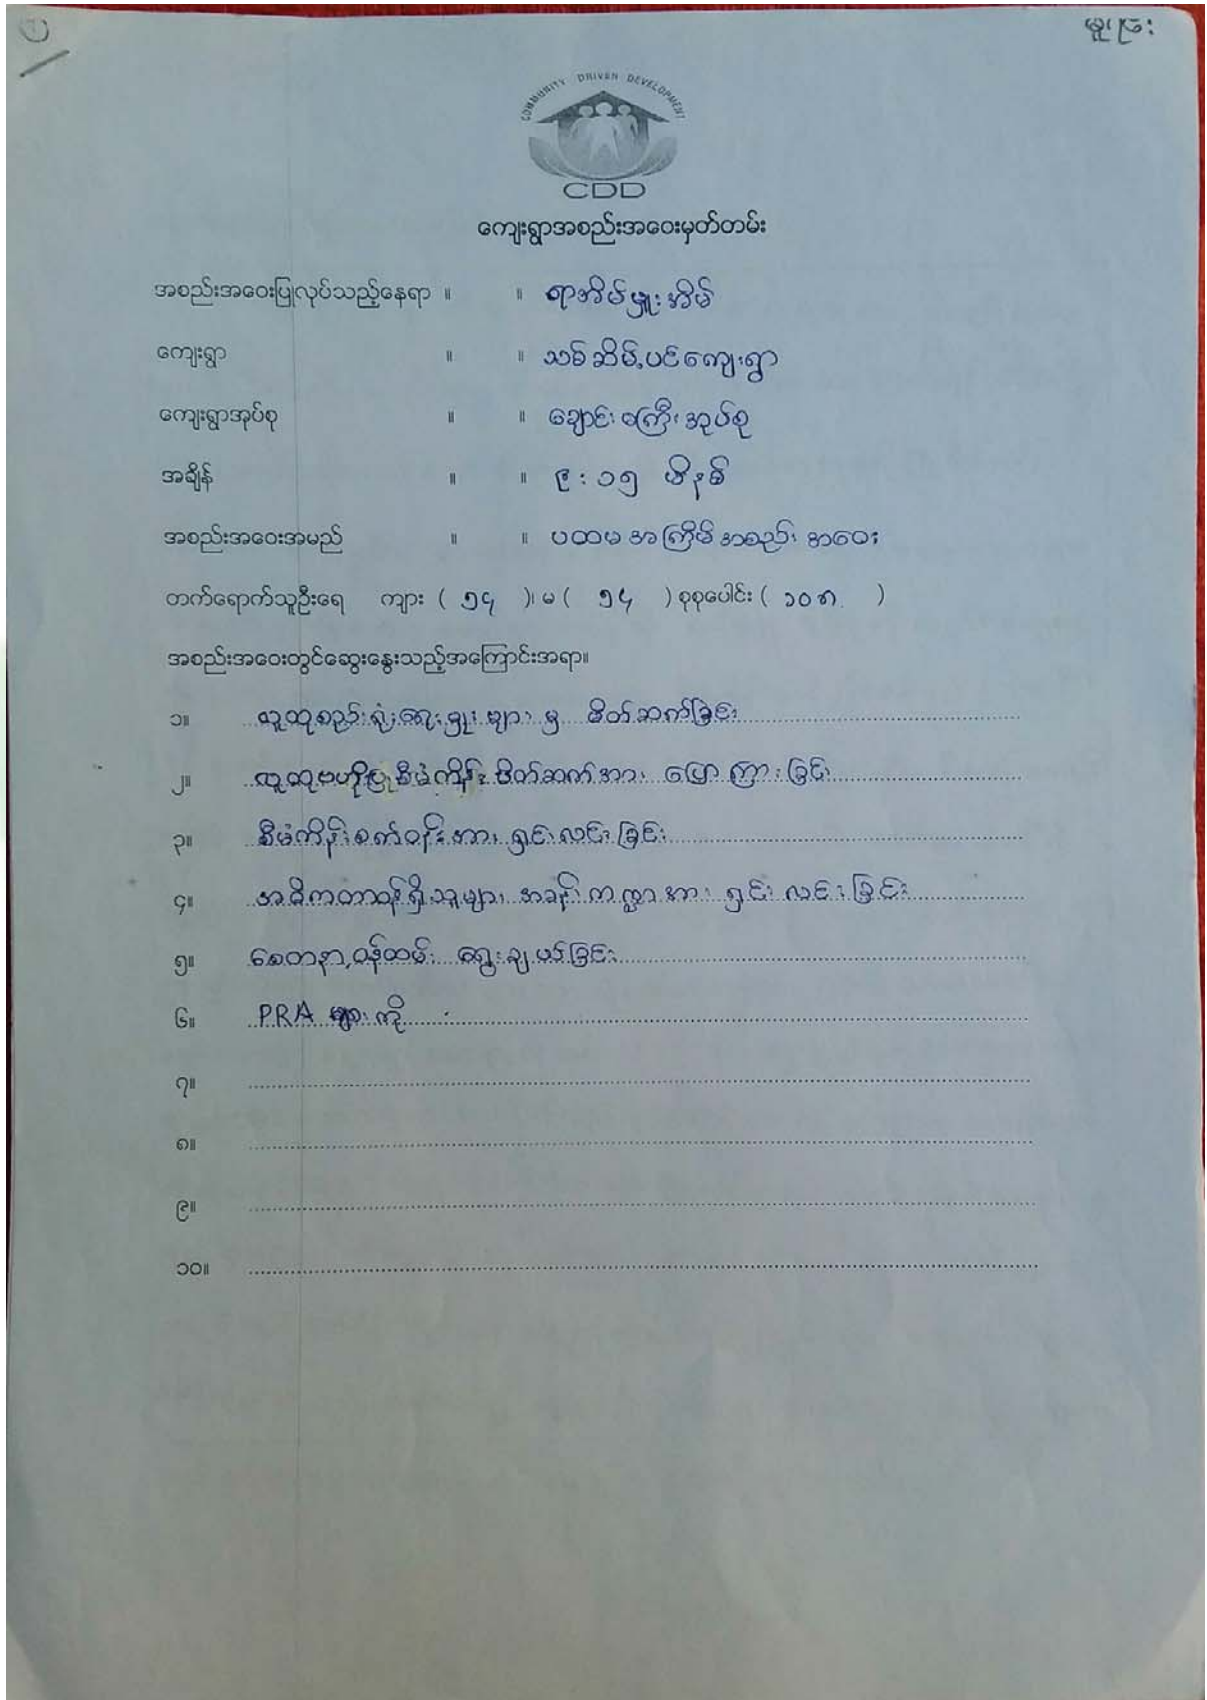 မူရင်း
COMMUNITY DRIVEN DEVELOPMENT
CDD
ကျေးရွာအစည်းအဝေးမှတ်တမ်း
အစည်းအဝေးပြုလုပ်သည့်နေရာ ။ ။ ရာအိမ်မှူးအိမ်
ကျေးရွာ ။ ။ သစ်ဆိမ့်ပင်ကျေးရွာ
ကျေးရွာအုပ်စု ။ ။ ချောင်းကြီးအုပ်စု
အချိန် ။ ။ ၉:၁၅ မိနစ်
အစည်းအဝေးအမည် ။ ။ ပထမအကြိမ်အစည်းအဝေး
တက်ရောက်သူဦးရေ ကျား ( ၅၄ )၊ မ ( ၅၄ ) စုစုပေါင်း ( ၁၀၈ )
အစည်းအဝေးတွင်ဆွေးနွေးသည့်အကြောင်းအရာ။
၁။ လူထုစည်းရုံးရေးမှူးများမှ မိတ်ဆက်ခြင်း
၂။ လူထုဗဟိုပြုစီမံကိန်းမိတ်ဆက်အား ပြောကြားခြင်း
၃။ စီမံကိန်းစက်ဝန်းအား ရှင်းလင်းခြင်း
၄။ အဓိကတာဝန်ရှိသူများ အခန်းကဏ္ဍအား ရှင်းလင်းခြင်း
၅။ စေတနာ့ဝန်ထမ်း ရွေးချယ်ခြင်း
၆။ PRA များကို
၇။
၈။
၉။
၁၀။